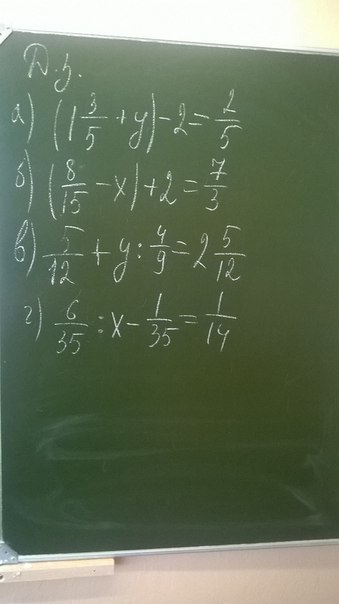 Д.з.
а) (1 3/5 + y) - 2 = 2/5
б) (8/15 - x) + 2 = 7/3
в) 5/12 + y : 4/9 = 2 5/12
г) 6/35 : x - 1/35 = 1/14